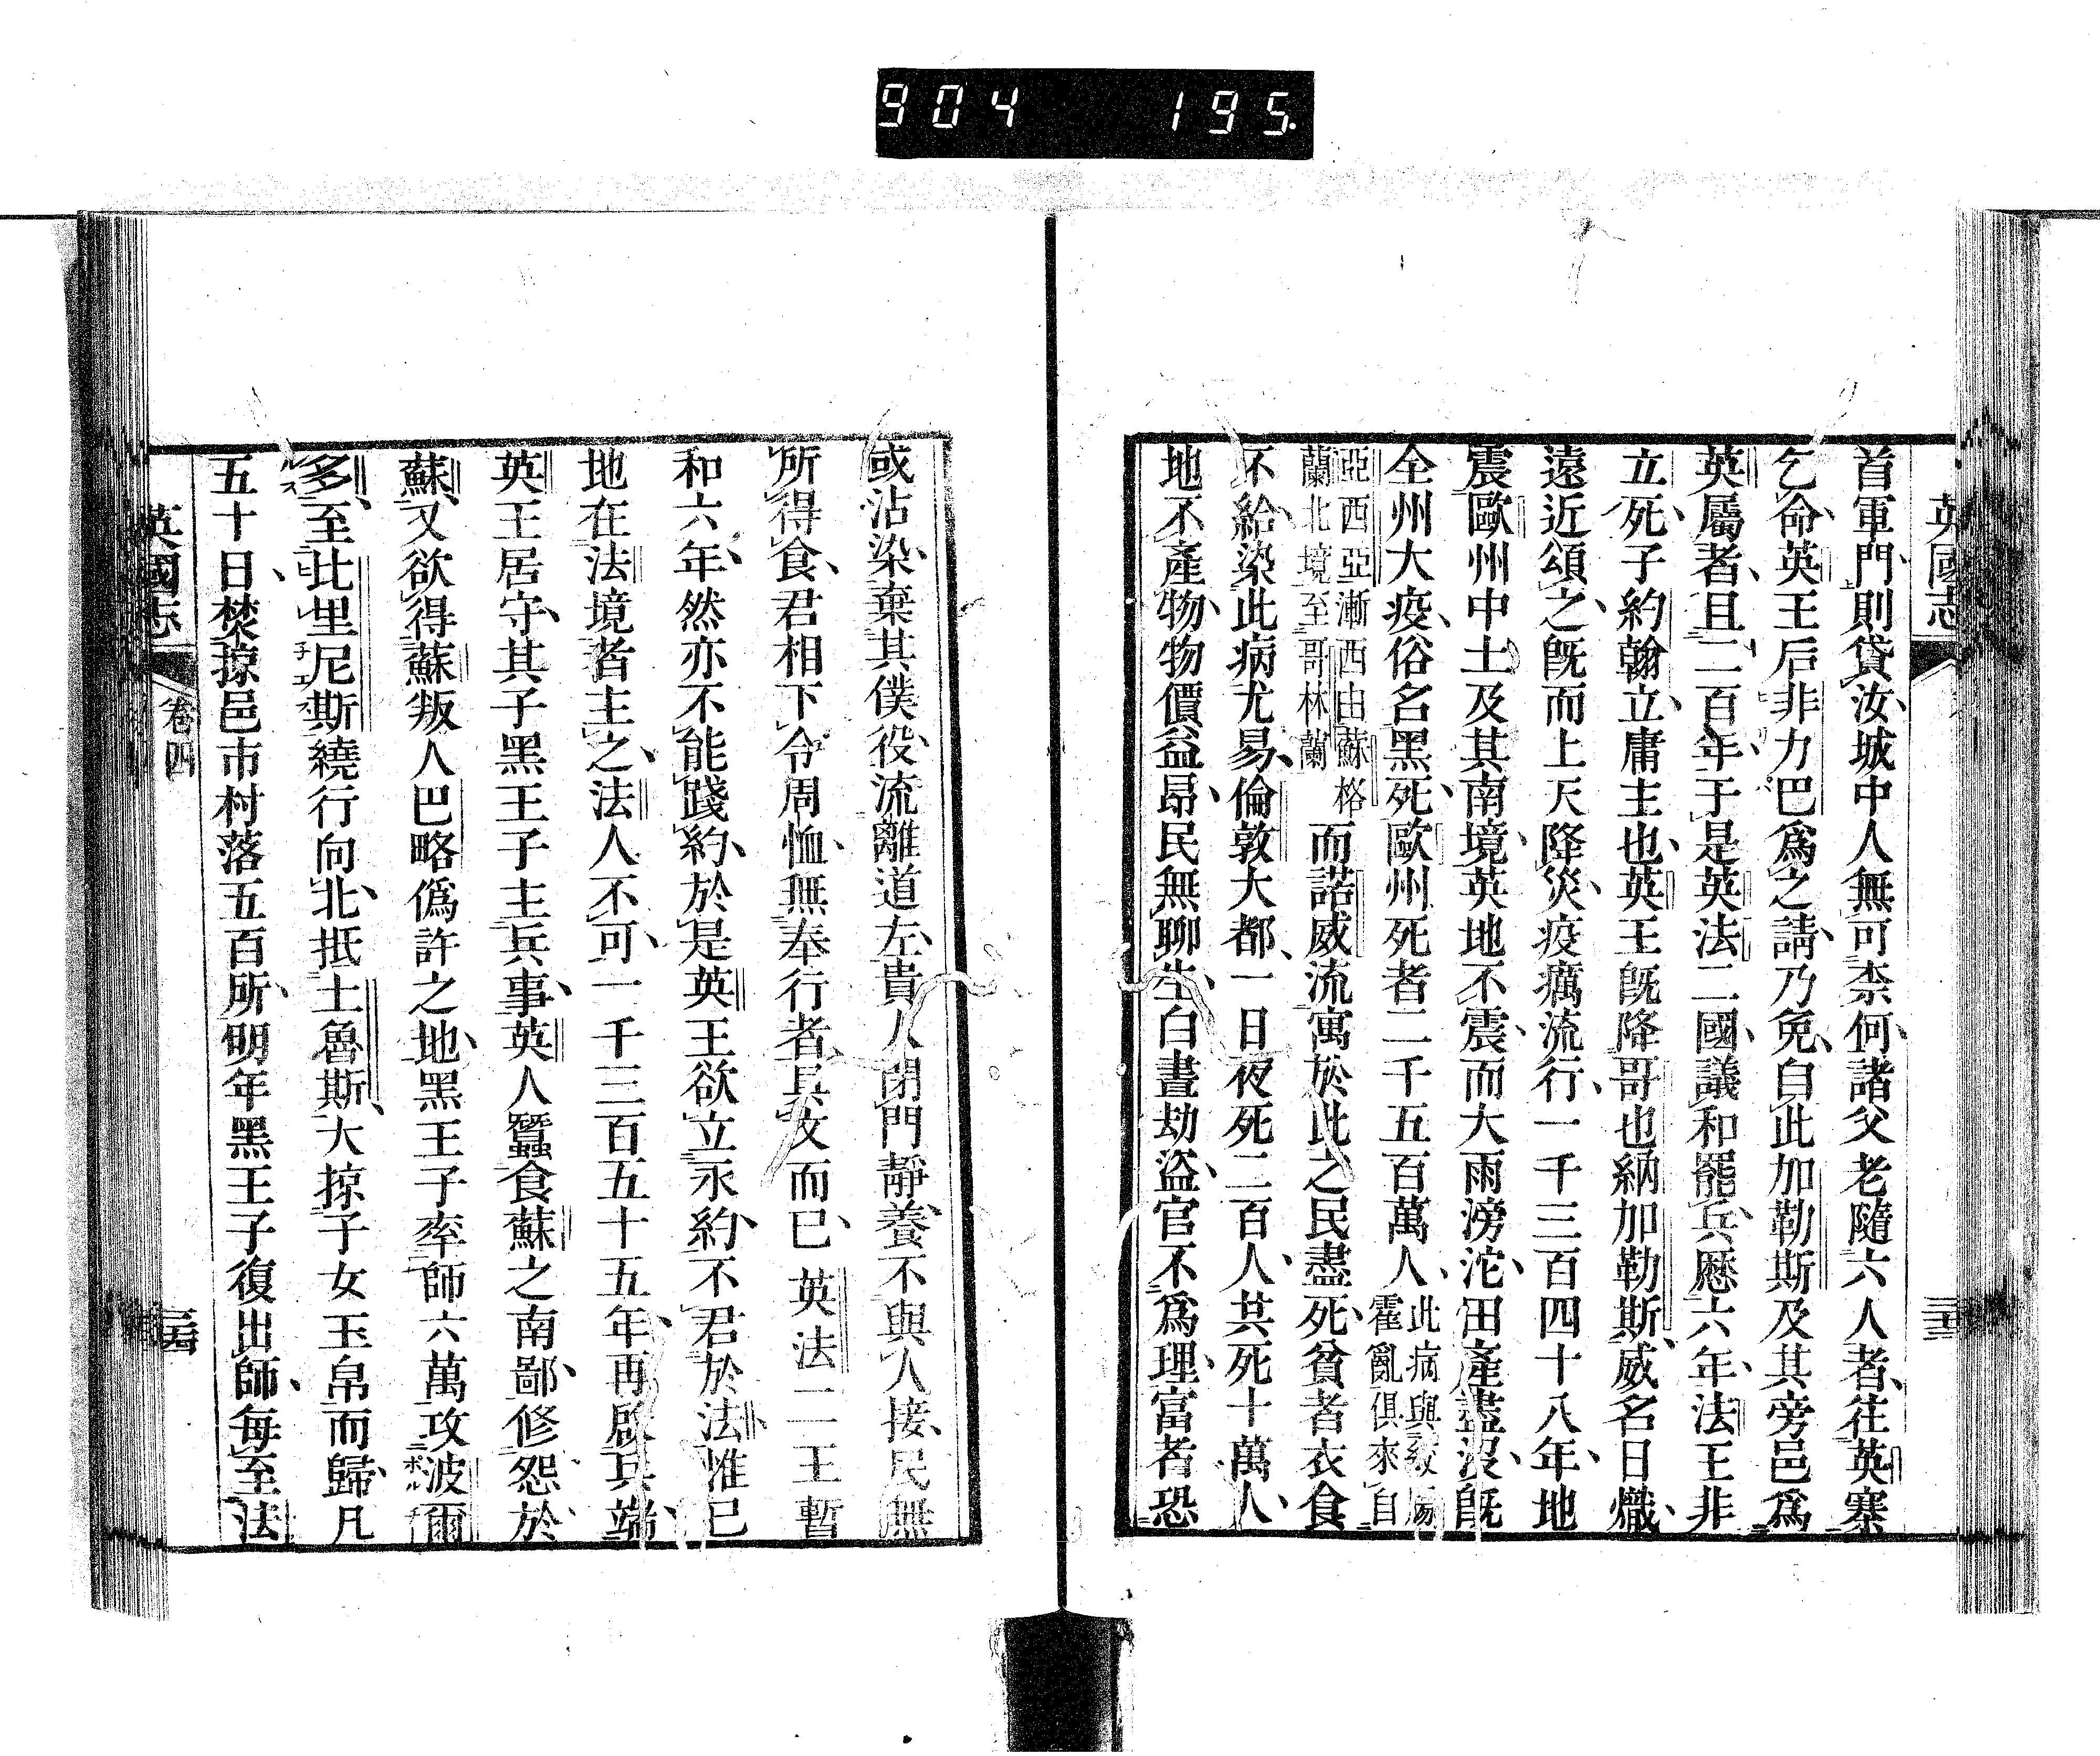 904 195.
英國志
首軍門則貸汝城中人無可柰何諸父老隨六人者往英塞
乞命英王后非力巴爲之請乃免自此加勒斯及其旁邑爲
英屬者且二百年于是英法二國議和罷兵懸六年法王非
立死子約翰立庸主也英王旣降哥也納加勒斯威名日熾
遠近頌之旣而上天降災疫癘流行一千三百四十八年地
震歐州中土及其南境英地不震而大雨滂沱田產盡沒旣
全州大疫俗名黑死歐州死者二千五百萬人此病與絞腸
霍亂俱來自
亞西亞漸西由蘇格
蘭北境至哥林蘭而諾威流寓於此之民盡死貧者衣食
不給染此病尤易倫敦大都一日夜死二百人共死十萬人
地不產物物價益昂民無聊生白晝劫盜官不爲理富者恐
或沾染棄其僕役流離道左貴人閉門靜養不與人接民無
所得食君相下令周恤無奉行者具文而已英法二王暫
和六年然亦不能踐約於是英王欲立永約不君於法惟已
地在法境者主之法人不可一千三百五十五年再啟兵端
英王居守其子黑王子主兵事英人蠶食蘇之南鄙修怨於
蘇又欲得蘇叛人巴略僞許之地黑王子率師六萬攻波爾
多至比里尼斯繞行向北抵土魯斯大掠子女玉帛而歸凡
五十日焚掠邑市村落五百所明年黑王子復出師每至法
英國志
卷四